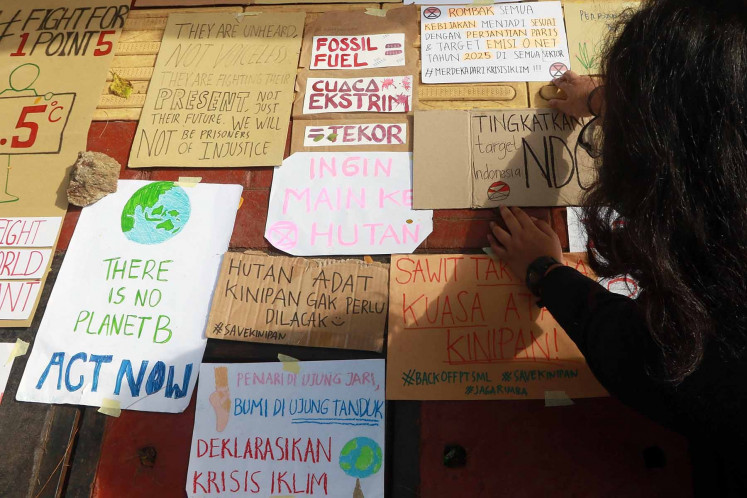 #FIGHT FOR
1 POINT 5
.5°C
FIGHT
WORLD
POINT
THEY ARE UNHEARD,
NOT VOICELESS
THEY ARE FIGHTING THEIR
PRESENT, NOT JUST
THEIR FUTURE. WE WILL
NOT BE PRISONERS
OF INJUSTICE
FOSSIL
FUEL =
CUACA
EKSTRIM
= TEKOR
INGIN
MAIN KE
HUTAN
ROMBAK SEMUA
KEBIJAKAN MENJADI SESUAI
DENGAN PERJANJIAN PARIS
& TARGET EMISI 0 NET
TAHUN 2025 DI SEMUA SEKTOR
#MERDEKADARIKRISISIKLIM !!!
TINGKATKAN
target
Indonesia
NDC
THERE
IS NO
PLANET B
ACT NOW
HUTAN ADAT
KINIPAN GAK PERLU
DILACAK
#SAVEKINIPAN
SAWIT
KUASA ATAS
KINIPAN!
#BACKOFFPTSML #SAVEKINIPAN
#JAGARIMBA
PENARI DI UJUNG JARI,
BUMI DI UJUNG TANDUK
DEKLARASIKAN
KRISIS IKLIM